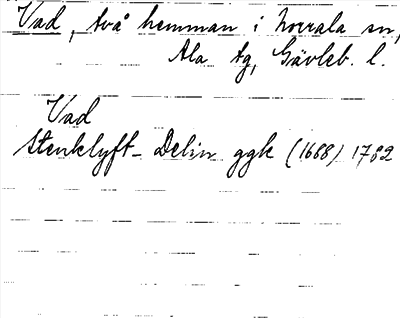 Vad, två hemman i Norrala sn,
Ala tg, Gävleb. l.
Vad
Stenklyft- Delin ggk (1688) 1782